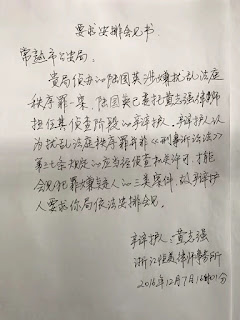 要求安排会见书
常熟市公安局:
贵局侦办的陆国英涉嫌扰乱法庭
秩序罪一案,陆国英已委托黄志强律师
担任其侦查阶段的辩护人。辩护人认
为扰乱法庭秩序罪并非《刑事诉讼法》
第三七条规定的应当经侦查机关许可,才能
会见犯罪嫌疑人的三类案件,故辩护
人要求你局依法安排会见。
辩护人:黄志强
浙江 律师事务所
2016年12月7日16时01分